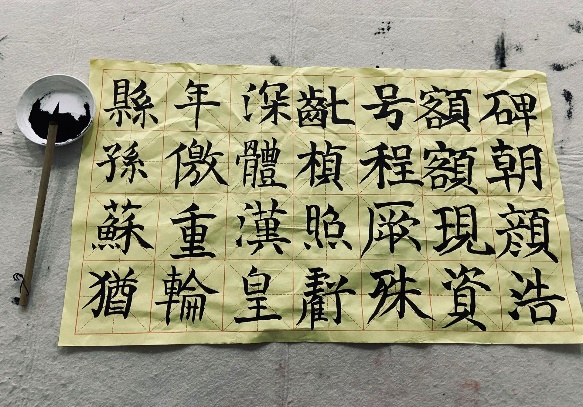 碑朝顔浩
額額現資
号程厥殊
齔楨照虧
深體漢皇
年儌重輪
縣孫蘇猶